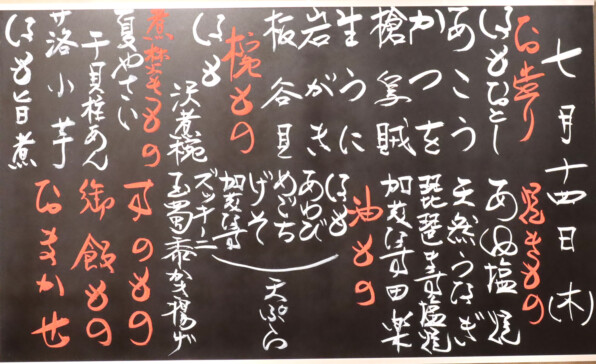 七月十四日(木)
お造り
はもおとし
あこう
かつを
槍烏賊
生うに
岩がき
板谷貝
椀もの
はも
沢煮椀
煮炊きもの
夏やさい
干貝柱あん
丸小芋
はも旨煮
焼きもの
あゆ塩焼
天然うなぎ
琵琶ます塩焼
加茂なす田楽
油もの
はも
あわび
めごち
げそ
加茂なす
ズッキーニ
天ぷら
玉蜀黍かき揚げ
すのもの
御飯もの
おまかせ